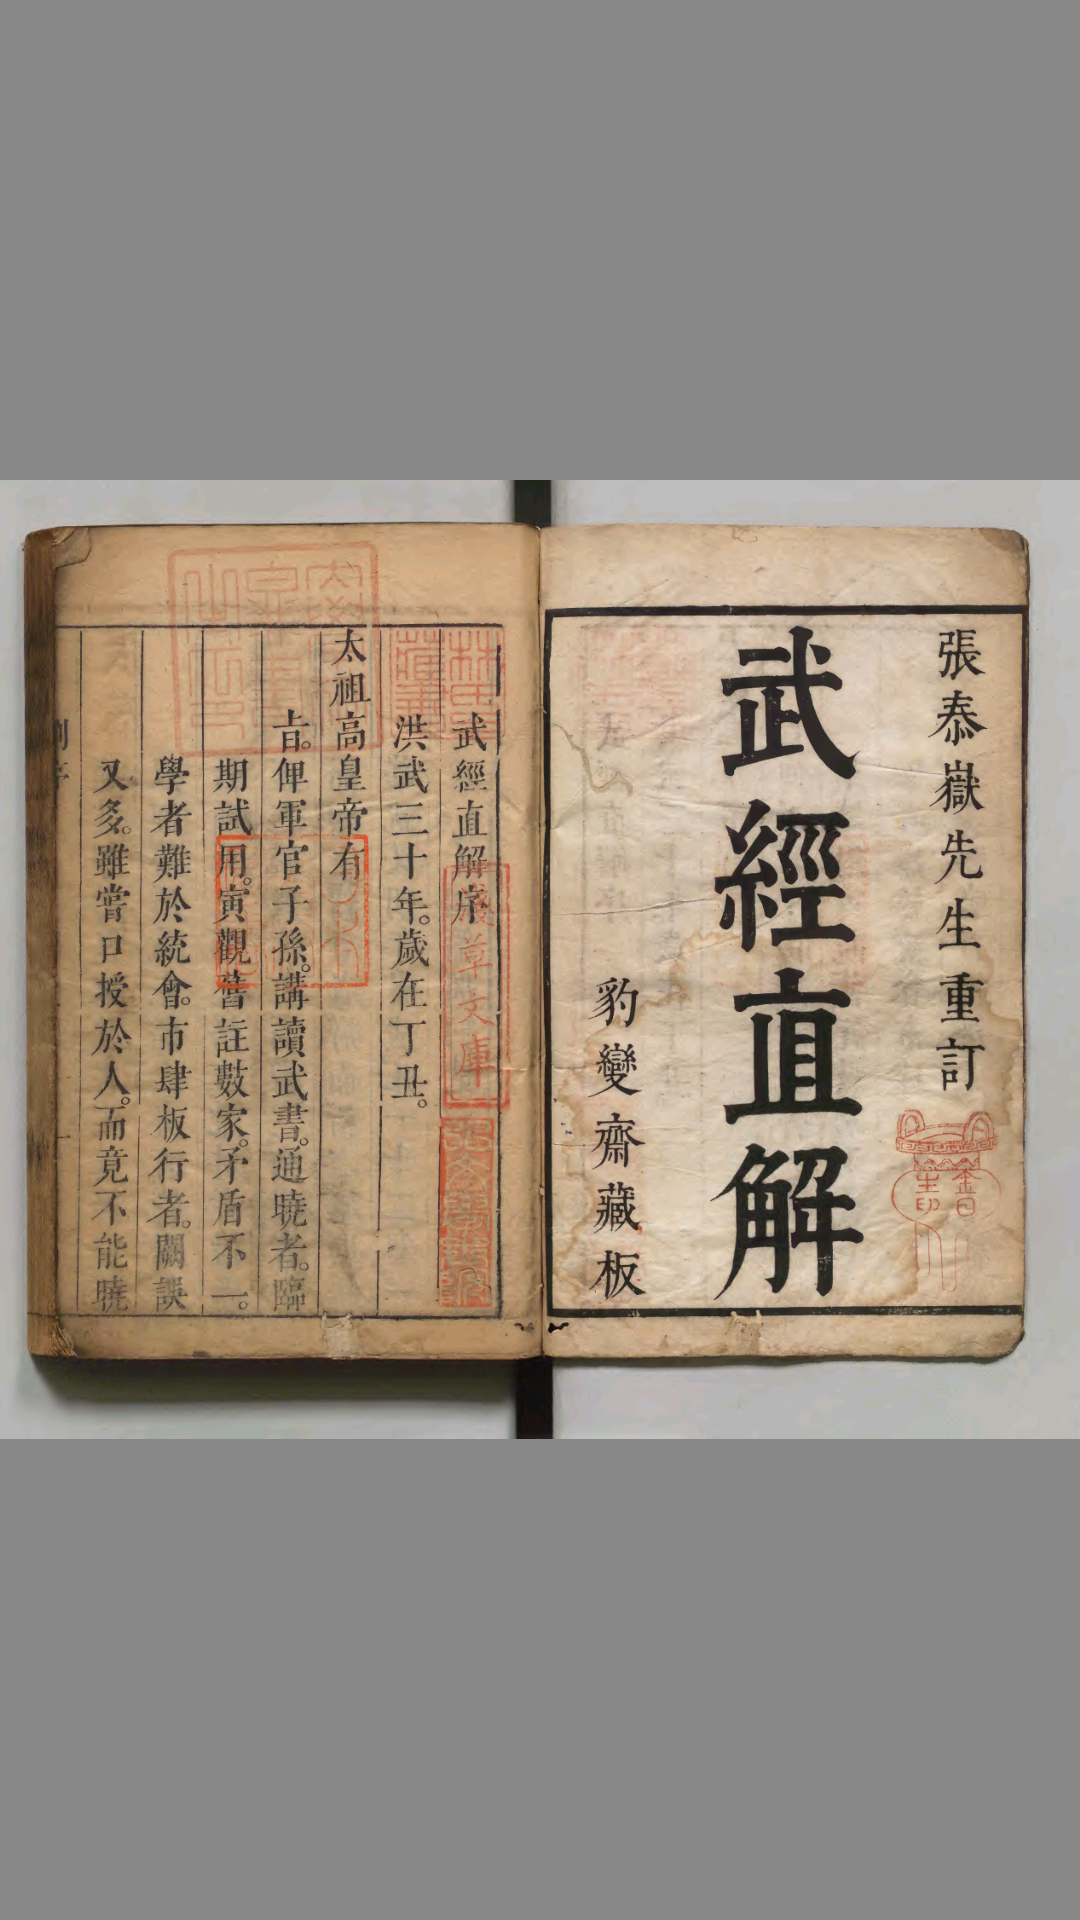 張泰嶽先生重訂
武經直解
豹變齋藏板
武經直解序
洪武三十年。歲在丁丑。
太祖高皇帝有
旨。俾軍官子孫。講讀武書。通曉者。臨
期試用。寅觀舊註數家。矛盾不一。
學者難於統會。市肆板行者。闕誤
又多。雖嘗口授於人。而竟不能曉
林氏
藏書
草文庫